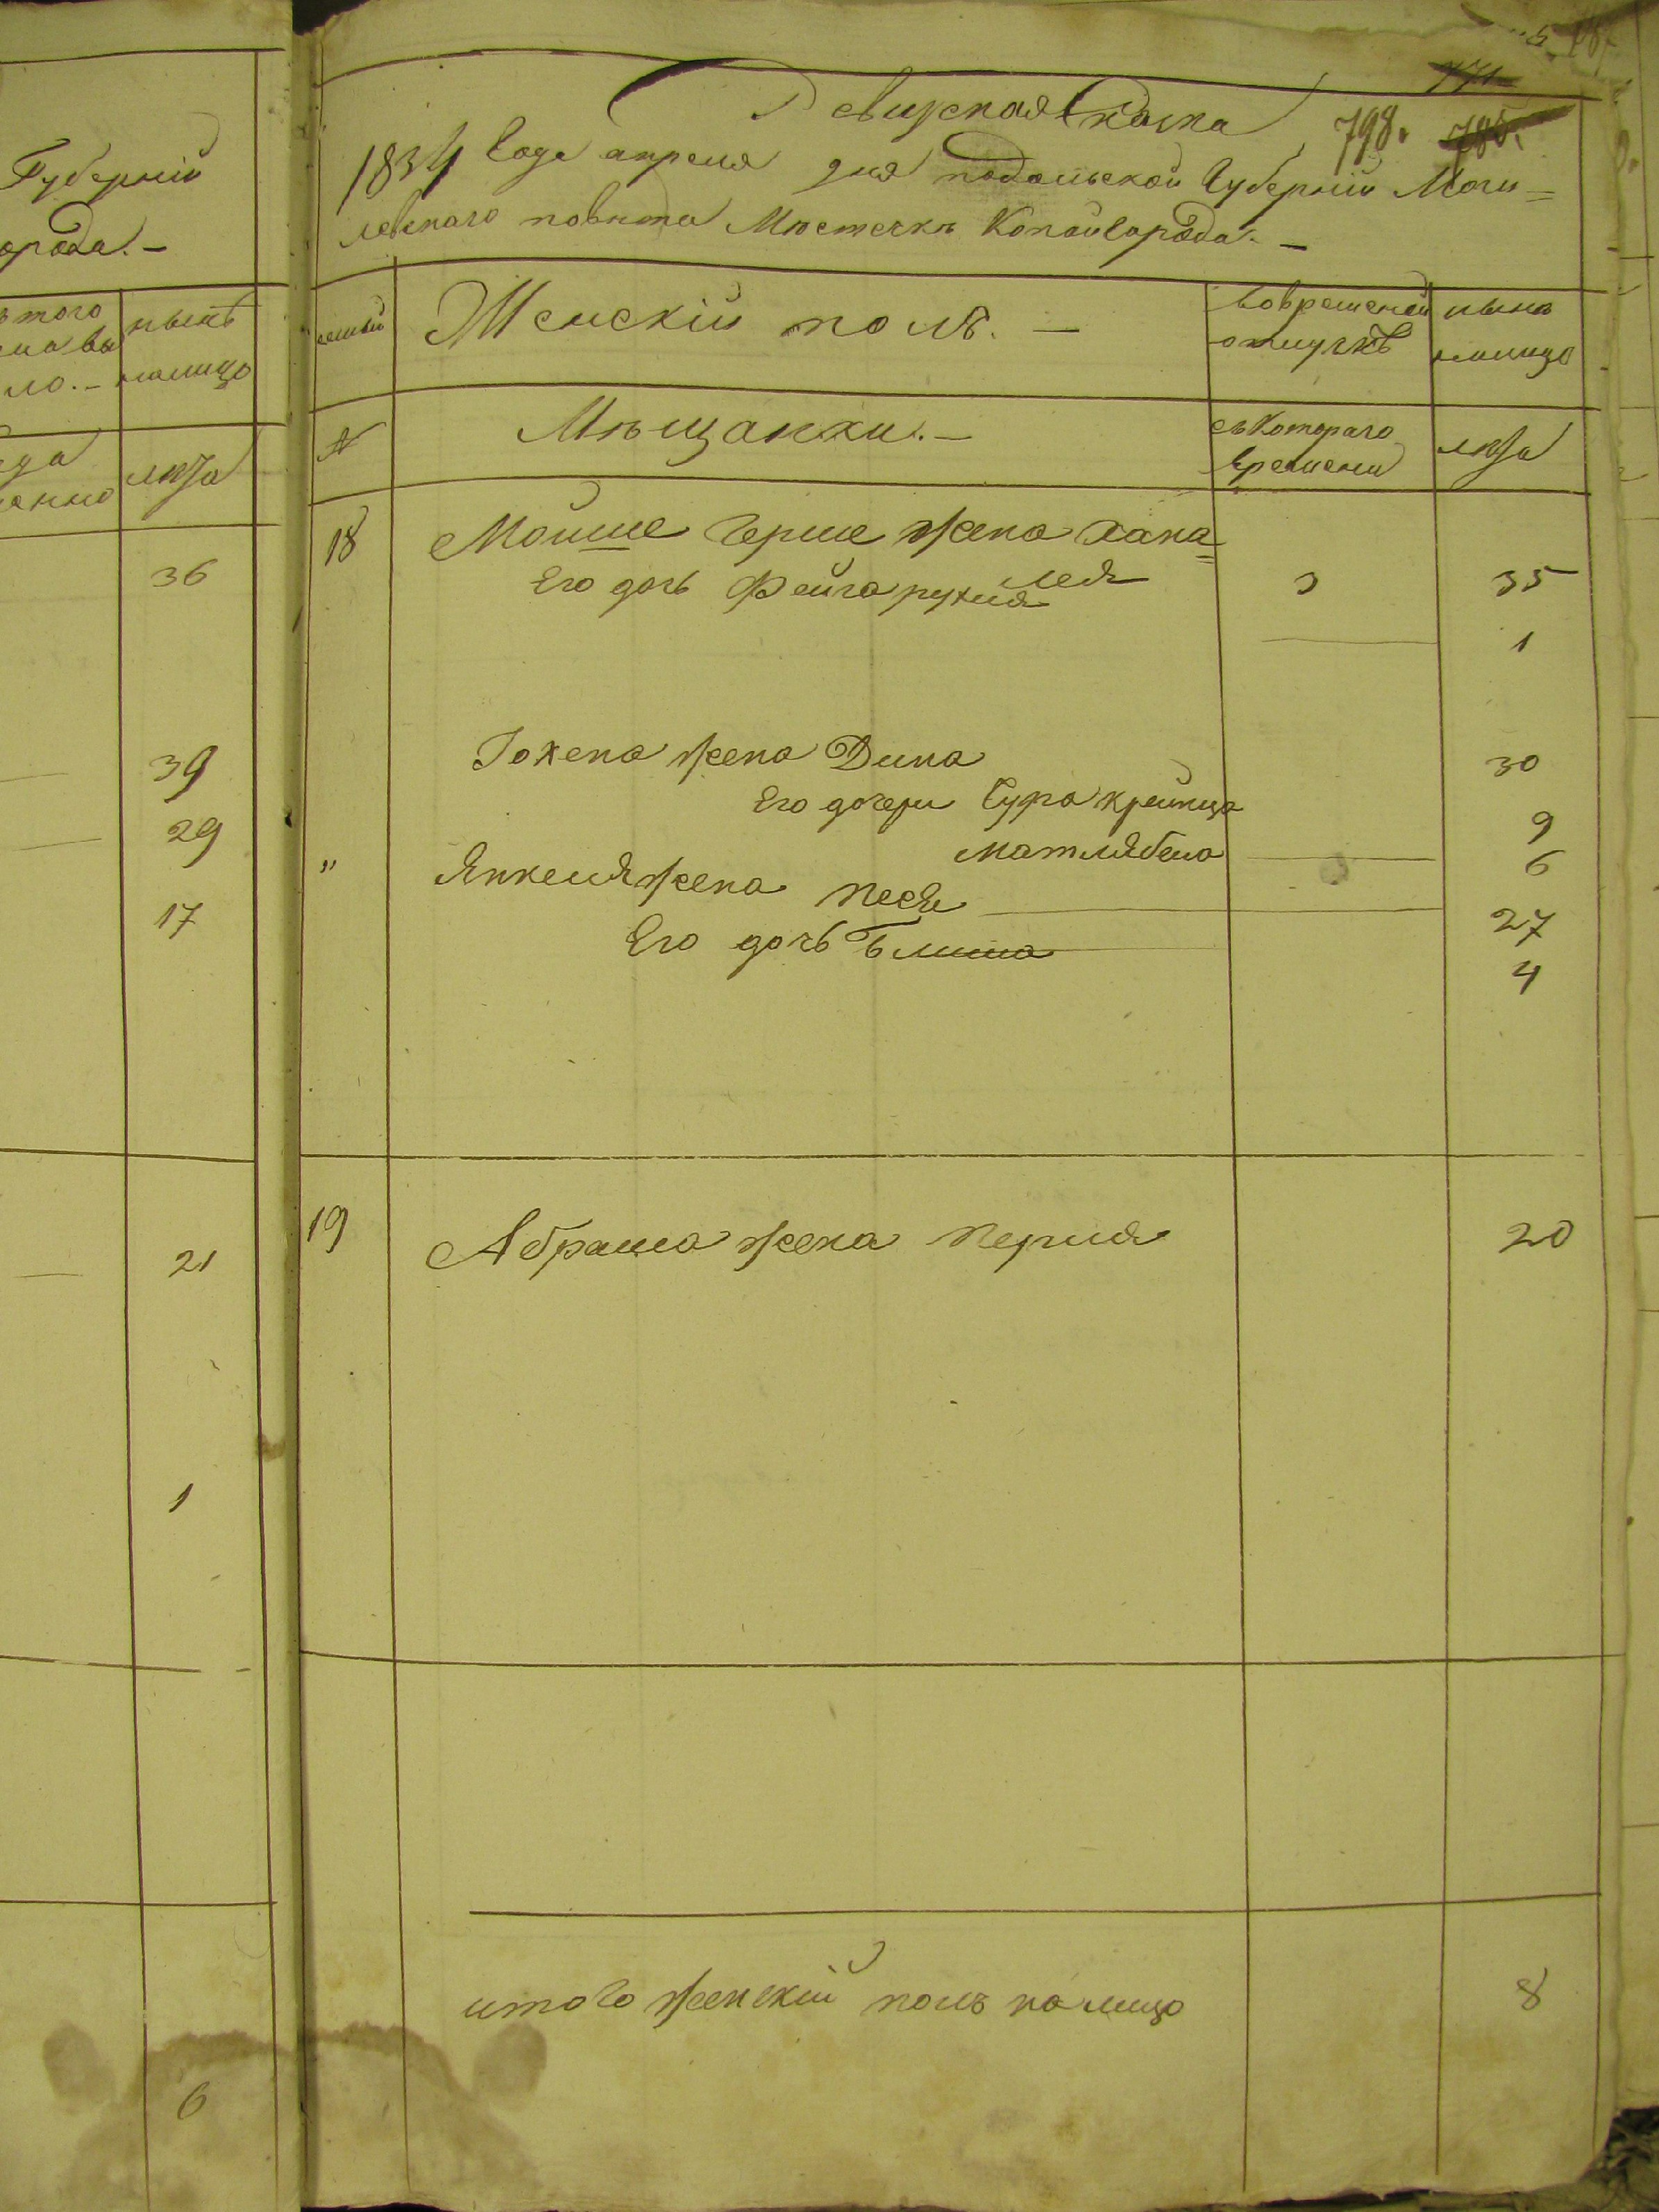 Губерніи
орода. –
того
нынѣ
на лицо
ло. –
лѣта
36
39
29
17
21
1
6
771
798. 785.
Ревизская Сказка
1834 Года апреля дня подольской Губерніи Моги=
левскаго повѣта Мѣстечка Копайгорода. –
семьи
Женскій полъ. –
вовременной
отлучкѣ
нынѣ
на лицо
№
Мѣщанки. –
съ Котораго
времени
лѣта
18 Мойше Герше жена Хана=
лея 35
Его дочь Фейга рухля 1
Іохена жена Дина 30
Его дочери Сура крейнца 9
матля бела 6
" Янкеля жена песя 27
Его дочь Блима 4
19 Абрама жена перля 20
итого женскій полъ на лицо 8